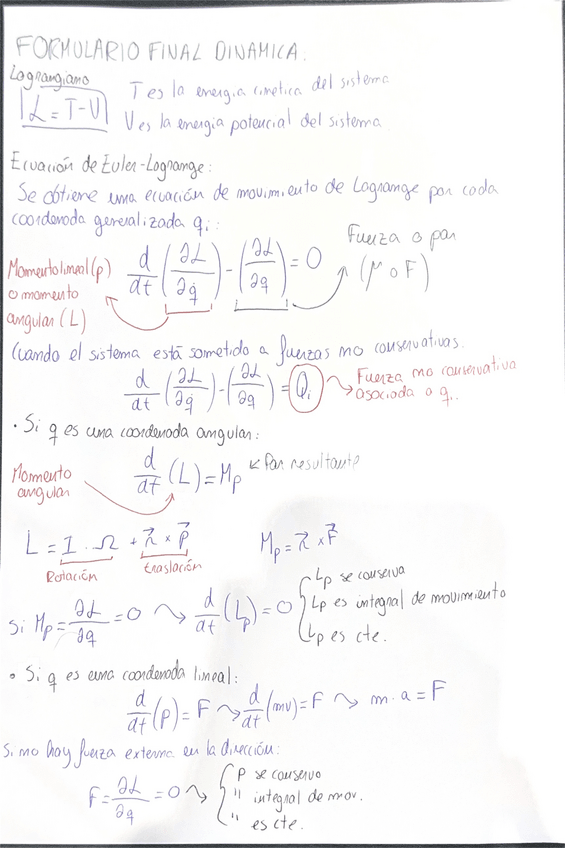 FORMULARIO FINAL DINAMICA:
Lagrangiano
L = T - V
T es la energia cinetica del sistema
V es la energia potencial del sistema
Ecuación de Euler-Lagrange:
Se obtiene una ecuación de movimiento de Lagrange por cada
coordenada generalizada qi:
Momento lineal (p)
o momento
angular (L)
d/dt (∂L/∂q̇) - (∂L/∂q) = 0
Fuerza o par
(μ o F)
Cuando el sistema está sometido a fuerzas no conservativas.
d/dt (∂L/∂q̇) - (∂L/∂q) = Qi
Fuerza no conservativa
asociada a qi.
• Si q es una coordenada angular:
Momento
angular
d/dt (L) = Mp ← Par resultante
L = I · Ω + r⃗ × p⃗
Rotación traslación
Mp = r⃗ × F⃗
Si Mp = ∂L/∂q = 0 ⇝ d/dt (Lp) = 0
Lp se conserva
Lp es integral de movimiento
Lp es cte.
• Si q es una coordenada lineal:
d/dt (p) = F ⇝ d/dt (mv) = F ⇝ m · a = F
Si no hay fuerza externa en la dirección:
F = ∂L/∂q = 0 ⇝
P se conserva
" integral de mov.
" es cte.